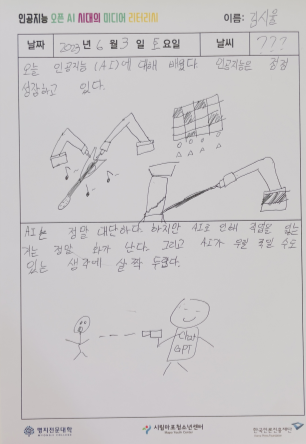 인공지능 오픈 AI 시대의 미디어 리터러시
이름: 김시율
날짜 2023 년 6 월 3 일 토 요일 날씨 ???
오늘 인공지능 (AI)에 대해 배웠다. 인공지능은 점점
성장하고 있다.
AI는 정말 대단하다. 하지만 AI로 인해 직업을 잃는
거는 정말 화가 난다. 그리고 AI가 우릴 죽일 수도
있는 생각에 살짝 두렵다.
Chat
GPT
명지전문대학
시립마포청소년센터
Mapo Youth Center
한국언론진흥재단